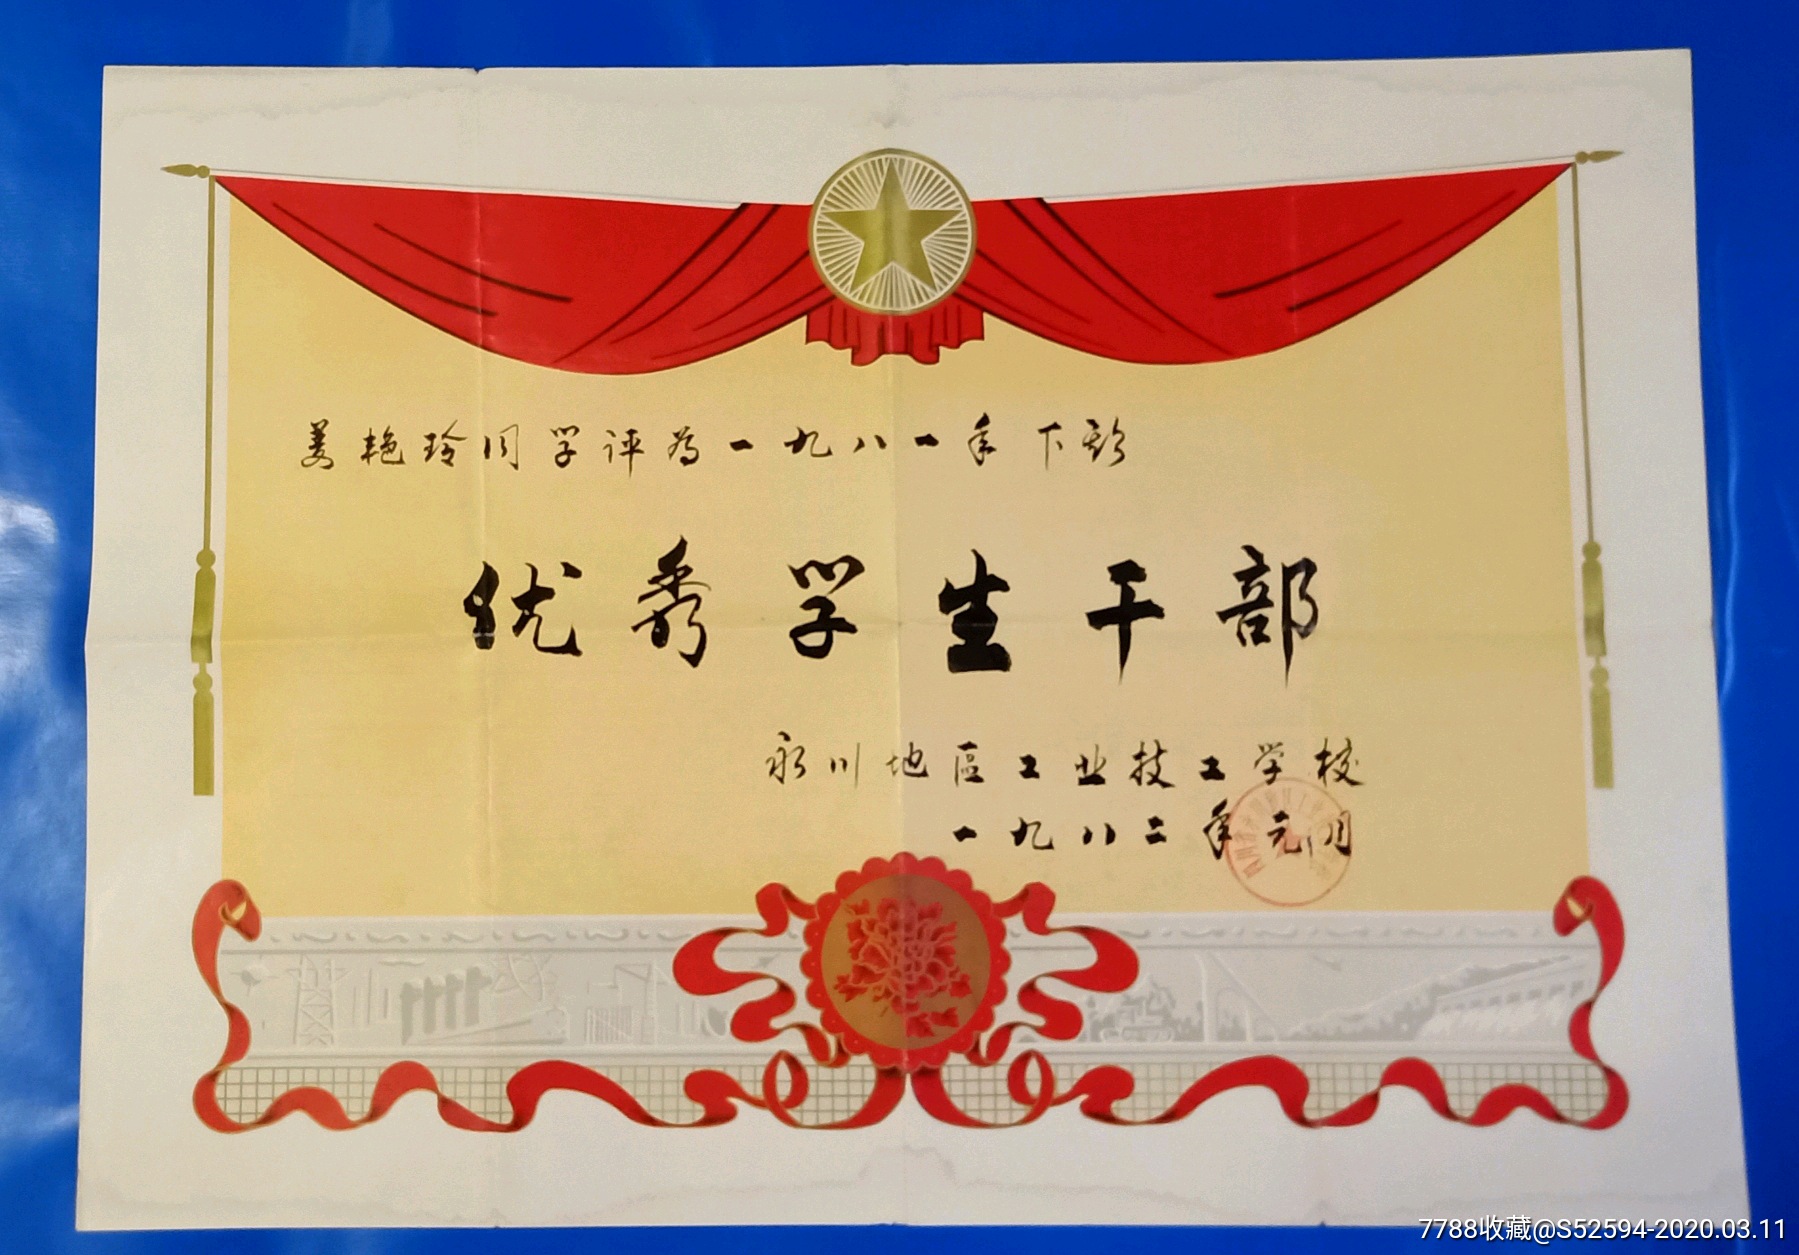 姜艳玲同学评为一九八一年下期
优秀学生干部
永川地區工业技工学校
一九八二年元月
7788收藏@S52594-2020.03.11